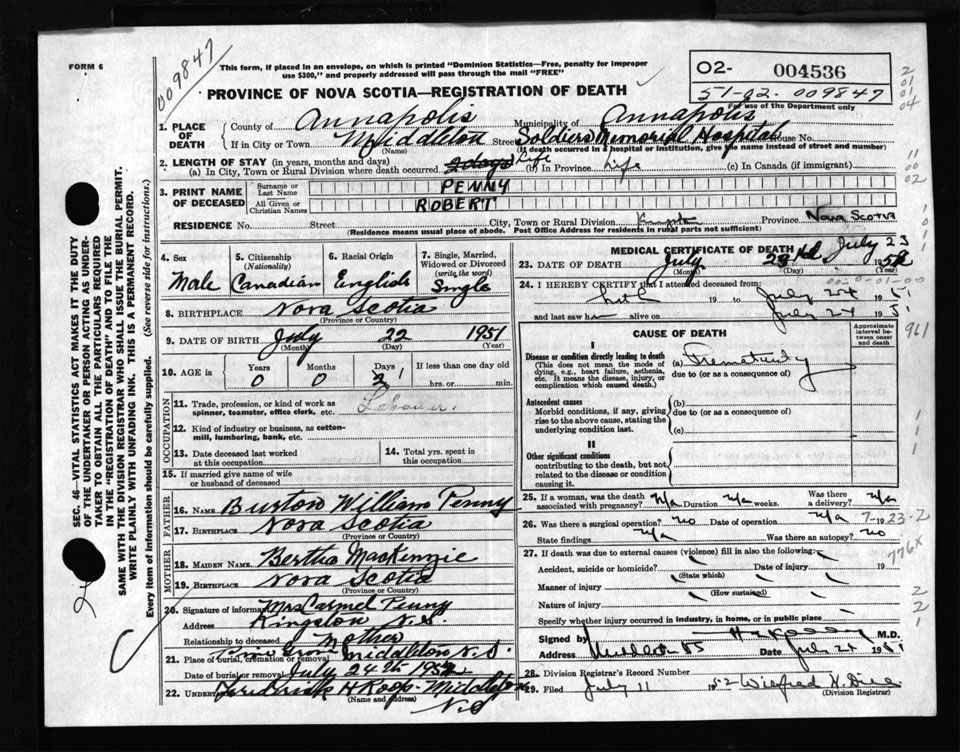 FORM 6
009847
This form, if placed in an envelope, on which is printed "Dominion Statistics—Free, penalty for improper
use $300," and properly addressed will pass through the mail "FREE"
PROVINCE OF NOVA SCOTIA—REGISTRATION OF DEATH
02- 004536
51-02. 009847
For use of the Department only
1. PLACE OF DEATH
County of Annapolis Municipality of Annapolis
If in City or Town Middleton Street Soldiers Memorial Hospital House No.
(Name) (If death occurred in a hospital or institution, give the name instead of street and number)
2. LENGTH OF STAY (in years, months and days)
(a) In City, Town or Rural Division where death occurred 2 days Life (b) In Province Life (c) In Canada (if immigrant)
3. PRINT NAME OF DECEASED
Surname or Last Name PENNY
All Given or Christian Names ROBERT
RESIDENCE No. Street City, Town or Rural Division Province Nova Scotia
(Residence means usual place of abode. Post Office Address for residents in rural parts not sufficient)
4. Sex Male
5. Citizenship (Nationality) Canadian
6. Racial Origin English
7. Single, Married, Widowed or Divorced (write the word) Single
8. BIRTHPLACE Nova Scotia
(Province or Country)
9. DATE OF BIRTH July 22 1951
(Month) (Day) (Year)
10. AGE in Years 0 Months 0 Days If less than one day hrs. or min.
OCCUPATION
11. Trade, profession, or kind of work as spinner, teamster, office clerk, etc.
12. Kind of industry or business, as cotton-mill, lumbering, bank, etc.
13. Date deceased last worked at this occupation
14. Total yrs. spent in this occupation
15. If married give name of wife or husband of deceased
FATHER
16. Name Burton William Penny
17. BIRTHPLACE Nova Scotia
(Province or Country)
MOTHER
18. MAIDEN NAME Bertha MacKenzie
19. BIRTHPLACE Nova Scotia
(Province or Country)
20. Signature of informant Mrs Carmel Penny
Address Kingston N.S.
Relationship to deceased Mother
21. Place of burial, cremation or removal Pine Grove Middleton N.S.
Date of burial or removal July 24th 1951
22. Undertaker Fredrick H Roop Middleton
N.S
(Name and address)
MEDICAL CERTIFICATE OF DEATH July 23
23. DATE OF DEATH July 23rd 195
(Month) (Day) (Year)
24. I HEREBY CERTIFY that I attended deceased from:
19 to July 24 1951
and last saw h alive on July 24 1951
CAUSE OF DEATH
Approximate interval between onset and death
I
Disease or condition directly leading to death
(This does not mean the mode of dying, e.g., heart failure, asthenia, etc. It means the disease, injury, or complication which caused death.)
(a) Prematurity
due to (or as a consequence of)
Antecedent causes
Morbid conditions, if any, giving rise to the above cause, stating the underlying condition last.
(b)
due to (or as a consequence of)
(c)
II
Other significant conditions
contributing to the death, but not related to the disease or condition causing it.
25. If a woman, was the death associated with pregnancy? n/a Duration n/a weeks. Was there a delivery? n/a
26. Was there a surgical operation? no Date of operation n/a 19
State findings n/a Was there an autopsy? no
27. If death was due to external causes (violence) fill in also the following:
Accident, suicide or homicide? Date of injury 19
(State which)
Manner of injury
(How sustained)
Nature of injury
Specify whether injury occurred in industry, in home, or in public place
Signed by M.D.
Address Date July 24 1951
28. Division Registrar's Record Number
29. Filed July 11 1952 Wilfred
(Division Registrar)
SEC. 46—VITAL STATISTICS ACT MAKES IT THE DUTY
OF THE UNDERTAKER OR PERSON ACTING AS UNDER-
TAKER TO OBTAIN ALL THE PARTICULARS REQUIRED
IN THE "REGISTRATION OF DEATH" AND TO FILE THE
SAME WITH THE DIVISION REGISTRAR WHO SHALL ISSUE THE BURIAL PERMIT.
WRITE PLAINLY WITH UNFADING INK. THIS IS A PERMANENT RECORD.
Every item of information should be carefully supplied. (See reverse side for instructions.)